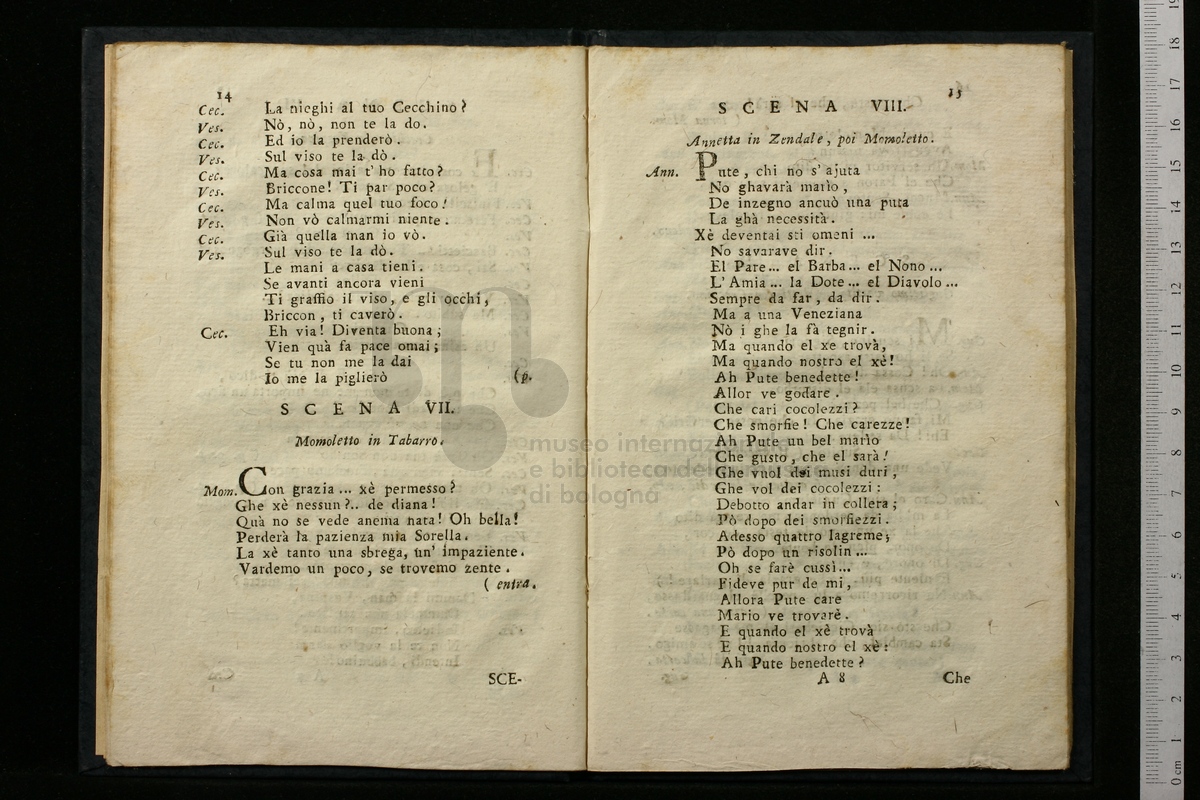 14
Cec. La nieghi al tuo Cecchino?
Ves. Nò, nò, non te la do.
Cec. Ed io la prenderò.
Ves. Sul viso te la dò.
Cec. Ma cosa mai t' ho fatto?
Ves. Briccone! Ti par poco?
Cec. Ma calma quel tuo foco!
Ves. Non vò calmarmi niente.
Cec. Già quella man io vò.
Ves. Sul viso te la dò.
Le mani a casa tieni.
Se avanti ancora vieni
Ti graffio il viso, e gli occhi,
Briccon, ti caverò.
Cec. Eh via! Diventa buona;
Vien quà fa pace omai;
Se tu non me la dai
Io me la piglierò (p.
SCENA VII.
Momoletto in Tabarro.
Mom. Con grazia ... xè permesso?
Ghe xè nessun?.. de diana!
Quà no se vede anema nata! Oh bella!
Perderà la pazienza mia Sorella.
La xè tanto una sbrega, un' impaziente.
Vardemo un poco, se trovemo zente.
( entra.
SCE-
15
SCENA VIII.
Annetta in Zendale, poi Momoletto.
Ann. Pute, chi no s' ajuta
No ghavarà marìo,
De inzegno ancuò una puta
La ghà necessità.
Xè deventai sti omeni ...
No savarave dir.
El Pare... el Barba... el Nono...
L' Amia... la Dote... el Diavolo...
Sempre da far, da dir.
Ma a una Veneziana
Nò i ghe la fà tegnir.
Ma quando el xe trovà,
Ma quando nostro el xè!
Ah Pute benedette!
Allor ve godare.
Che cari cocolezzi?
Che smorfie! Che carezze!
Ah Pute un bel marìo
Che gusto, che el sarà!
Ghe vuol dei musi duri,
Ghe vol dei cocolezzi:
Debotto andar in collera;
Pò dopo dei smorfiezzi.
Adesso quattro lagreme;
Pò dopo un risolin...
Oh se farè cussì...
Fideve pur de mi,
Allora Pute care
Mario ve trovarè.
E quando el xè trovà
E quando nostro el xè:
Ah Pute benedette?
A 8 Che
museo internazionale
e biblioteca della
di bologna